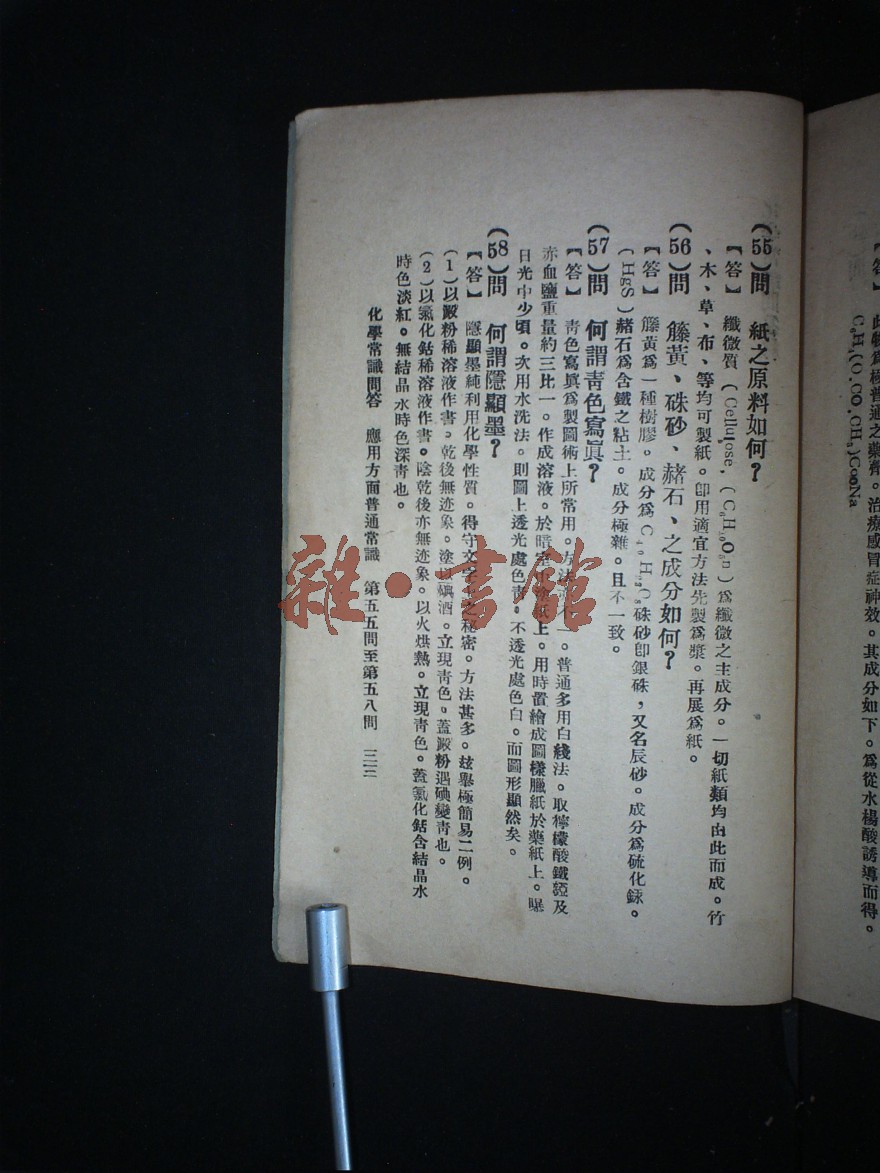 【答】 此物爲極普通之藥劑。治療感冒症神效。其成分如下。爲從水楊酸誘導而得。
C₆H₄(O.CO.CH₃)CooNa
(55)問 紙之原料如何?
【答】 纖微質(Cellulose,(C₆H₁₀O₅n)爲纖微之主成分。一切紙類均由此而成。竹
、木、草、布、等均可製紙。卽用適宜方法先製爲漿。再展爲紙。
(56)問 籐黃、硃砂、赭石、之成分如何?
【答】 籐黃爲一種樹膠。成分爲 硃砂卽銀硃,又名辰砂。成分爲硫化銾。
(HgS)赭石爲含鐵之粘土。成分極雜。且不一致。
(57)問 何謂靑色寫眞?
【答】 靑色寫眞爲製圖術上所常用。方法 不一。普通多用白綫法。取檸檬酸鐵𨥙及
赤血鹽重量約三比一。作成溶液。於暗室 塗紙上。用時置繪成圖樣臘紙於藥紙上。曝
日光中少頃。次用水洗法。則圖上透光處色靑。不透光處色白。而圖形顯然矣。
(58)問 何謂隱顯墨?
【答】 隱顯墨純利用化學性質。得守文字 之秘密。方法甚多。玆舉極簡易二例。
(1)以澱粉稀溶液作書。乾後無迹象。塗以碘酒。立現靑色。蓋澱粉遇碘變靑也。
(2)以氯化鈷稀溶液作書。陰乾後亦無迹象。以火烘熱。立現靑色。蓋氯化鈷含結晶水
時色淡紅。無結晶水時色深靑也。
化學常識問答 應用方面普通常識 第五五問至第五八問 三三
雜·書館